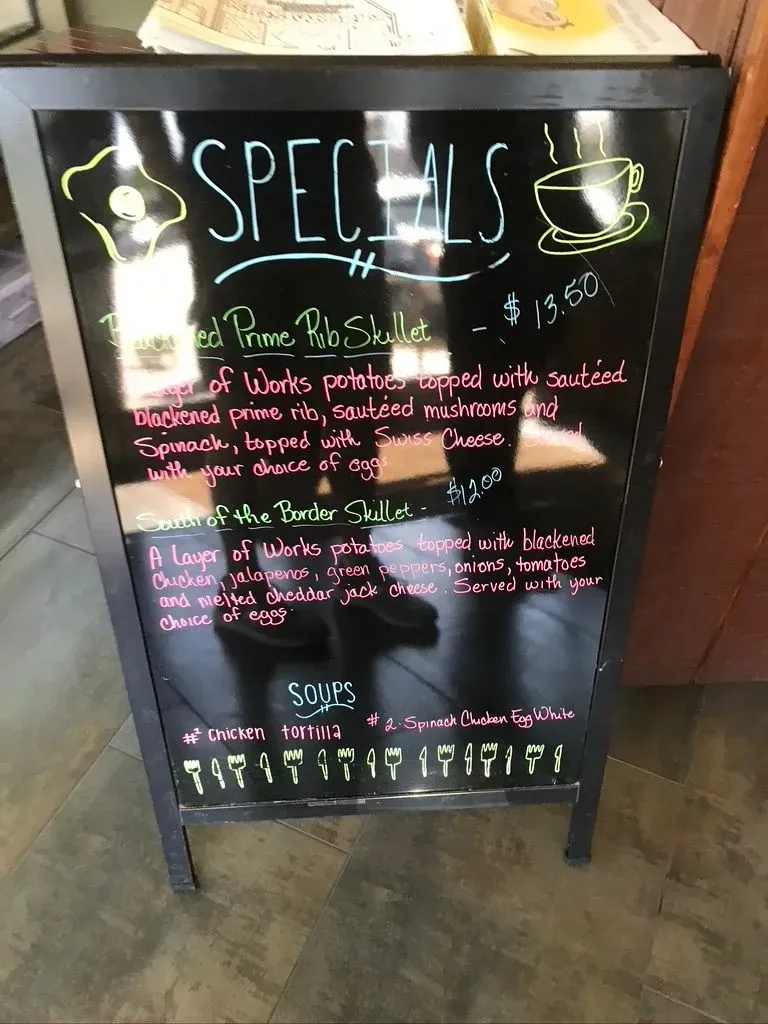 SPECIALS
Blackened Prime Rib Skillet - $13.50
Layer of Works potatoes topped with sautéed
blackened prime rib, sautéed mushrooms and
Spinach, topped with Swiss Cheese. Served
with your choice of eggs
South of the Border Skillet - $12.00
A Layer of Works potatoes topped with blackened
Chicken, jalapenos, green peppers, onions, tomatoes
and melted cheddar jack cheese. Served with your
choice of eggs.
SOUPS
chicken tortilla # 2. Spinach Chicken Egg White